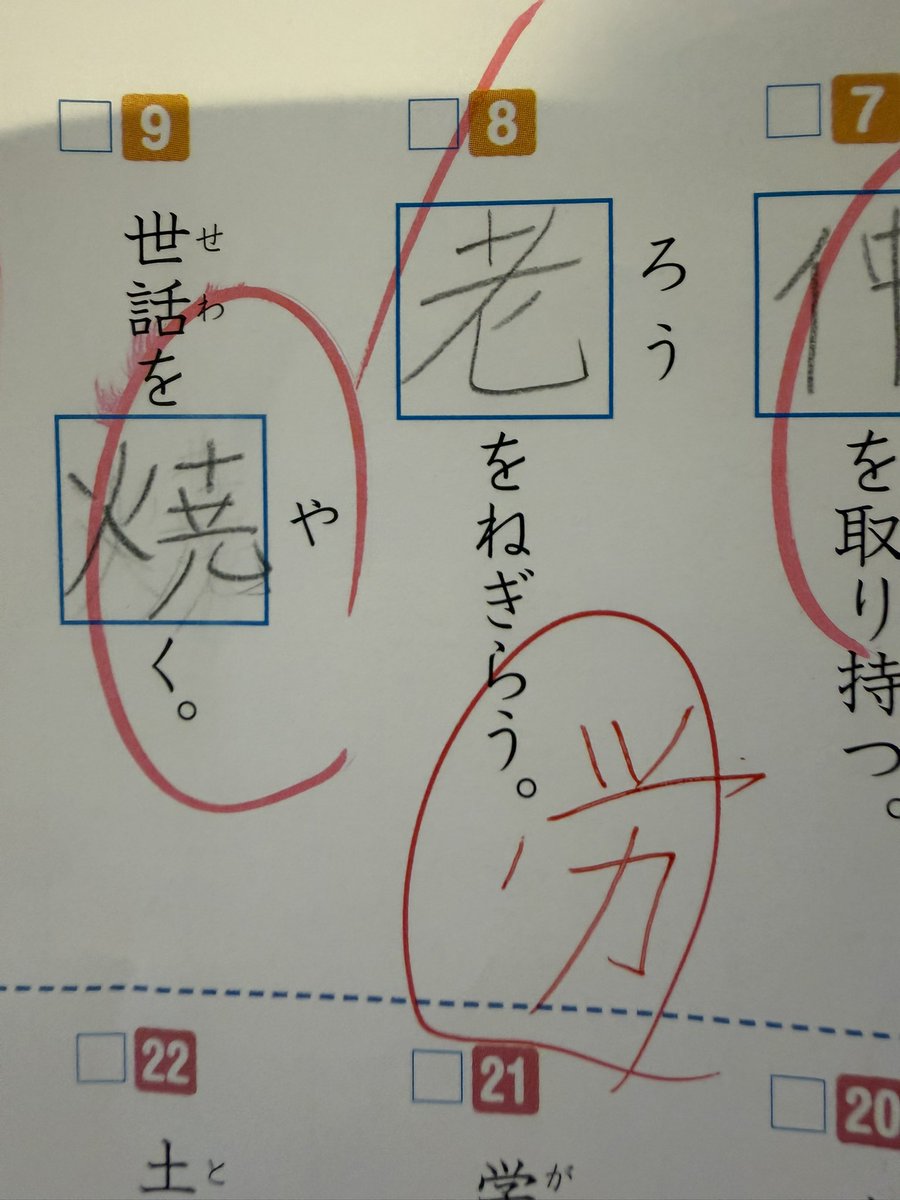 7
仲を取り持つ。
8
ろう
老をねぎらう。
労
9
せわ
や
世話を焼く。
20
21
が
学
22
と
土